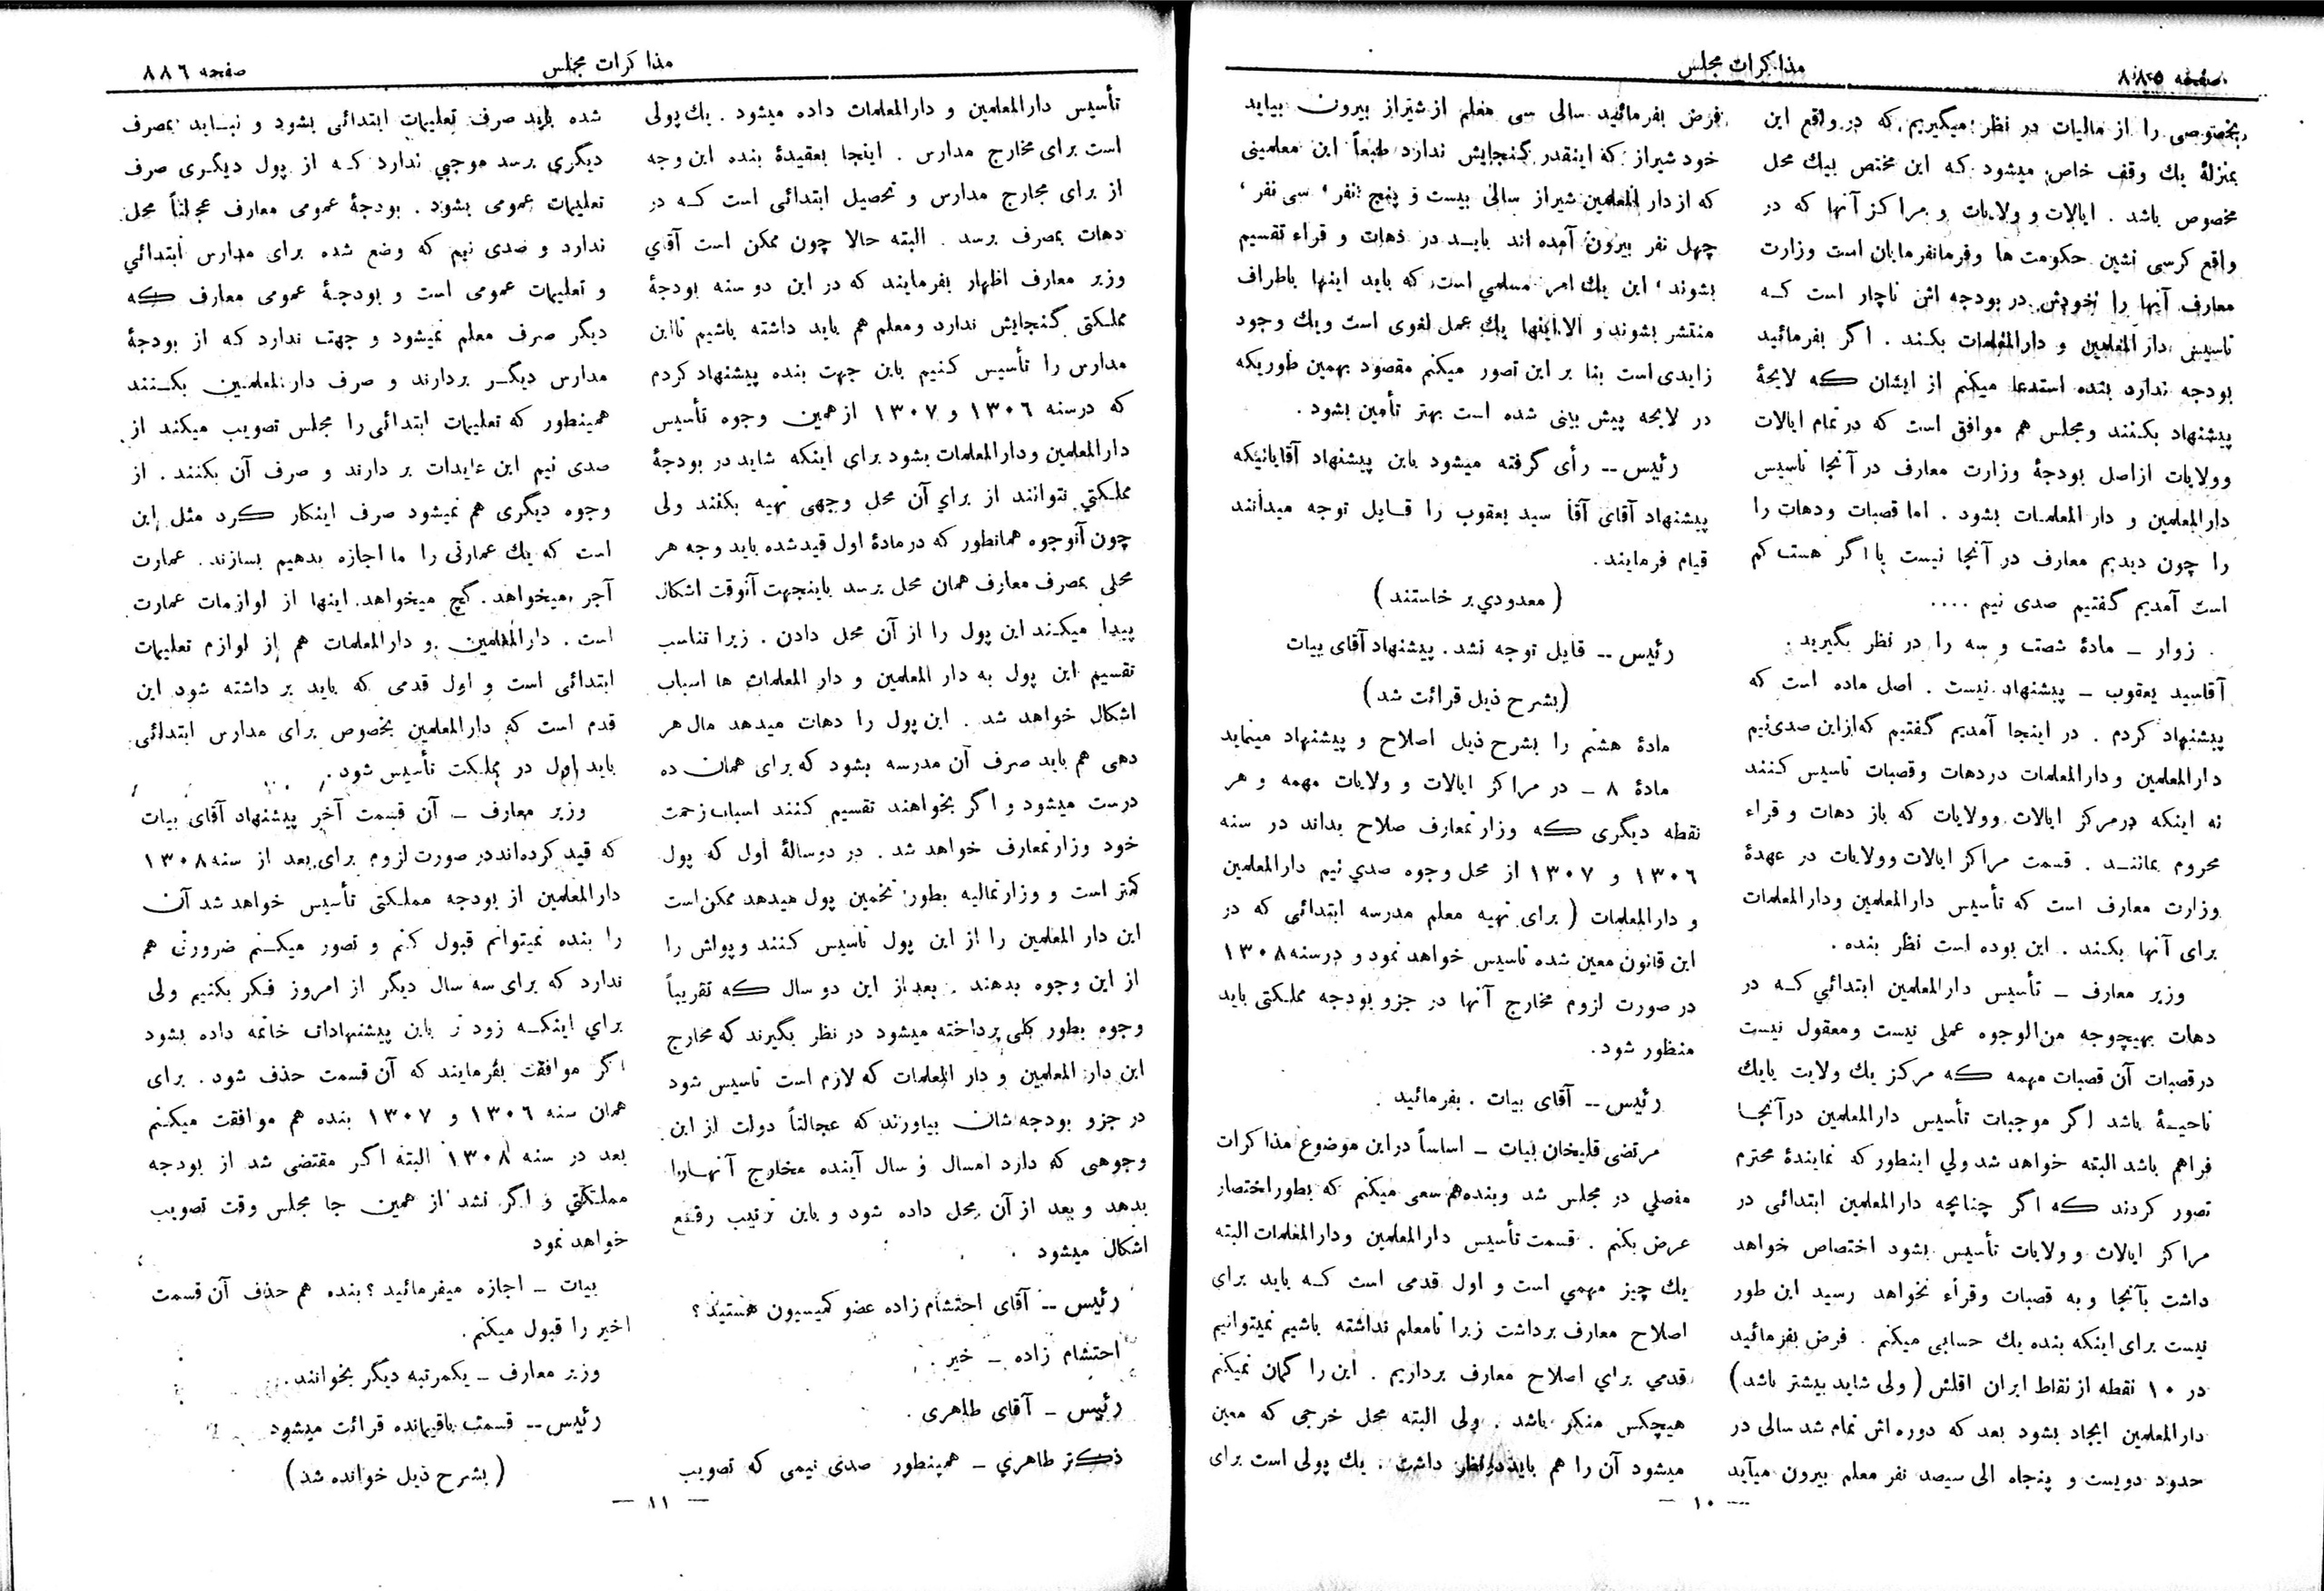 صفحه ۸۸۵
مذاکرات مجلس
بخصوصی را از مالیات در نظر میگیریم که در واقع این
بمنزلهٔ یك وقف خاص میشود که این مختص بیك محل
مخصوص باشد . ایالات و ولایات و مراکز آنها که در
واقع کرسی نشین حکومت ها وفرمانفرمایان است وزارت
معارف آنها را خودش در بودجه اش ناچار است که
تاسیس دار المعلمین و دارالمعلمات بکند . اگر بفرمائید
بودجه ندارد بنده استدعا میکنم از ایشان که لایحهٔ
پیشنهاد بکنند ومجلس هم موافق است که در تمام ایالات
وولایات ازاصل بودجهٔ وزارت معارف در آنجا تاسیس
دارالمعلمین و دار المعلمات بشود . اما قصبات ودهات را
را چون دیدیم معارف در آنجا نیست یا اگر هست کم
است آمدیم گفتیم صدی نیم ....
زوار – مادهٔ شصت و سه را در نظر بگیرید .
آقاسید یعقوب – پیشنهاد نیست . اصل ماده است که
پیشنهاد کردم . در اینجا آمدیم گفتیم که ازاین صدی نیم
دارالمعلمین ودارالمعلمات دردهات وقصبات تاسیس کنند
نه اینکه درمرکز ایالات وولایات که باز دهات و قراء
محروم بمانند . قسمت مراکز ایالات وولایات در عهدهٔ
وزارت معارف است که تأسیس دارالمعلمین ودارالمعلمات
برای آنها بکند . این بوده است نظر بنده .
وزیر معارف – تأسیس دارالمعلمین ابتدائي که در
دهات بهیچوجه من‌الوجوه عملی نیست ومعقول نیست
درقصبات آن قصبات مهمه که مرکز یك ولایت یایك
ناحیهٔ باشد اگر موجبات تأسیس دارالمعلمین درآنجا
فراهم باشد البته خواهد شد ولي اینطور که نمایندهٔ محترم
تصور کردند که اگر چنانچه دارالمعلمین ابتدائی در
مراکز ایالات و ولایات تأسیس بشود اختصاص خواهد
داشت بآنجا و به قصبات وقراء نخواهد رسید این طور
نیست برای اینکه بنده یك حسابی میکنم . فرض بفرمائید
در ۱۰ نقطه از نقاط ایران اقلش ( ولی شاید بیشتر باشد )
دارالمعلمین ایجاد بشود بعد که دوره اش تمام شد سالی در
حدود دویست و پنجاه الی سیصد نفر معلم بیرون میآید
فرض بفرمائید سالی سی معلم از شیراز بیرون بیاید
خود شیراز که اینقدر گنجایش ندارد طبعاً این معلمینی
که از دار المعلمین شیراز سالی بیست و پنج نفر ، سی نفر ،
چهل نفر بیرون آمده اند باید در دهات و قراء تقسیم
بشوند ، این یك امر مسلمي است که باید اینها باطراف
منتشر بشوند و الا اینها یك عمل لغوی است ویك وجود
زایدی است بنا بر این تصور میکنم مقصود بهمین طوریکه
در لایحه پیش بینی شده است بهتر تأمین بشود .
رئیس -- رأی گرفته میشود باین پیشنهاد آقایانیکه
پیشنهاد آقای آقا سید یعقوب را قابل توجه میدانند
قیام فرمایند .
( معدودي بر خاستند )
رئیس -- قابل توجه نشد . پیشنهاد آقای بیات
(بشرح ذیل قرائت شد )
مادهٔ هشتم را بشرح ذیل اصلاح و پیشنهاد مینماید
مادهٔ ۸ – در مراکز ایالات و ولایات مهمه و هر
نقطه دیگری که وزارتمعارف صلاح بداند در سنه
۱۳۰۶ و ۱۳۰۷ از محل وجوه صدي نیم دارالمعلمین
و دارالمعلمات ( برای تهیه معلم مدرسه ابتدائی که در
این قانون معین شده تاسیس خواهد نمود و درسنه ۱۳۰۸
در صورت لزوم مخارج آنها در جزو بودجه مملکتی باید
منظور شود .
رئیس -- آقای بیات . بفرمائید .
مرتضی قلیخان بیات – اساساً دراین موضوع مذاکرات
مفصلي در مجلس شد وبنده هم سعی میکنم که بطور اختصار
عرض بکنم . قسمت تأسیس دارالمعلمین ودارالمعلمات البته
یك چیز مهمي است و اول قدمی است که باید برای
اصلاح معارف برداشت زیرا تامعلم نداشته باشیم نمیتوانیم
قدمي براي اصلاح معارف برداریم . این را گمان نمیکنم
هیچکس منکر باشد . ولی البته محل خرجی که معین
میشود آن را هم باید در نظر داشت . یك پولی است برای
— ۱۰ —
مذاکرات مجلس
صفحه ۸۸۶
تأسیس دارالمعلمین و دارالمعلمات داده میشود . یك پولی
است برای مخارج مدارس . اینجا بعقیدهٔ بنده این وجه
از برای مخارج مدارس و تحصیل ابتدائی است که در
دهات بمصرف برسد . البته حالا چون ممکن است آقاي
وزیر معارف اظهار بفرمایند که در این دو سنه بودجهٔ
مملکتي گنجایش ندارد ومعلم هم باید داشته باشیم تااین
مدارس را تأسیس کنیم باین جهت بنده پیشنهاد کردم
که درسنه ۱۳۰۶ و ۱۳۰۷ از همین وجوه تأسیس
دارالمعلمین ودارالمعلمات بشود برای اینکه شاید در بودجهٔ
مملکتي نتوانند از براي آن محل وجهی تهیه بکنند ولی
چون آنوجوه همانطور که درمادهٔ اول قیدشده باید وجه هر
محلی بمصرف معارف همان محل برسد باینجهت آنوقت اشکال
پیدا میکند این پول را از آن محل دادن . زیرا تناسب
تقسیم این پول به دار المعلمین و دار المعلمات ها اسباب
اشکال خواهد شد . این پول را دهات میدهد مال هر
دهی هم باید صرف آن مدرسه بشود که برای همان ده
درست میشود و اگر بخواهند تقسیم کنند اسباب زحمت
خود وزارتمعارف خواهد شد . در دوسالهٔ اول که پول
کمتر است و وزارتمالیه بطور تخمین پول میدهد ممکن است
این دار المعلمین را از این پول تأسیس کنند وپولش را
از این وجوه بدهند . بعداز این دو سال که تقریباً
وجوه بطور کلی پرداخته میشود در نظر بگیرند که مخارج
این دار المعلمین و دار المعلمات که لازم است تاسیس شود
در جزو بودجه شان بیاورند که عجالتاً دولت از این
وجوهی که دارد امسال و سال آینده مخارج آنهارا
بدهد و بعد از آن محل داده شود و باین ترتیب رفع
اشکال میشود .
رئیس -- آقای احتشام زاده عضو کمیسیون هستید ؟
احتشام زاده – خیر .
رئیس – آقای طاهری .
دکتر طاهري – همینطور صدی نیمی که تصویب
شده باید صرف تعلیمات ابتدائی بشود و نباید بمصرف
دیگري برسد موجبي ندارد که از پول دیگری صرف
تعلیمات عمومی بشود . بودجهٔ عمومی معارف عجالتاً محل
ندارد و صدی نیم که وضع شده برای مدارس ابتدائي
و تعلیمات عمومی است و بودجهٔ عمومی معارف که
دیگر صرف معلم نمیشود و جهت ندارد که از بودجهٔ
مدارس دیگر بردارند و صرف دارالمعلمین بکنند
همینطور که تعلیمات ابتدائی را مجلس تصویب میکند از
صدی نیم این عایدات بر دارند و صرف آن بکنند . از
وجوه دیگری هم نمیشود صرف اینکار کرد مثل این
است که یك عمارتی را ما اجازه بدهیم بسازند . عمارت
آجر میخواهد . گچ میخواهد . اینها از لوازمات عمارت
است . دارالمعلمین و دارالمعلمات هم از لوازم تعلیمات
ابتدائی است و اول قدمی که باید بر داشته شود این
قدم است که دارالمعلمین بخصوص برای مدارس ابتدائی
باید اول در مملکت تأسیس شود .
وزیر معارف – آن قسمت آخر پیشنهاد آقای بیات
که قید کرده‌اند در صورت لزوم برای بعد از سنه ۱۳۰۸
دارالمعلمین از بودجه مملکتی تأسیس خواهد شد آن
را بنده نمیتوانم قبول کنم و تصور میکنم ضرورتی هم
ندارد که برای سه سال دیگر از امروز فکر بکنیم ولی
براي اینکه زود تر باین پیشنهادات خاتمه داده بشود
اگر موافقت بفرمایند که آن قسمت حذف شود . برای
همان سنه ۱۳۰۶ و ۱۳۰۷ بنده هم موافقت میکنم
بعد در سنه ۱۳۰۸ البته اگر مقتضی شد از بودجه
مملکتي و اگر نشد از همین جا مجلس وقت تصویب
خواهد نمود
بیات – اجازه میفرمائید ؟ بنده هم حذف آن قسمت
اخیر را قبول میکنم .
وزیر معارف – یکمرتبه دیگر بخوانند .
رئیس -- قسمت باقیمانده قرائت میشود
( بشرح ذیل خوانده شد )
— ۱۱ —